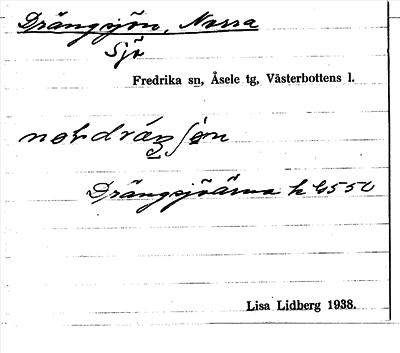 Drängsjön, Norra
Sjö
Fredrika sn, Åsele tg, Västerbottens l.
Drängsjöarna h 6550
Lisa Lidberg 1938.